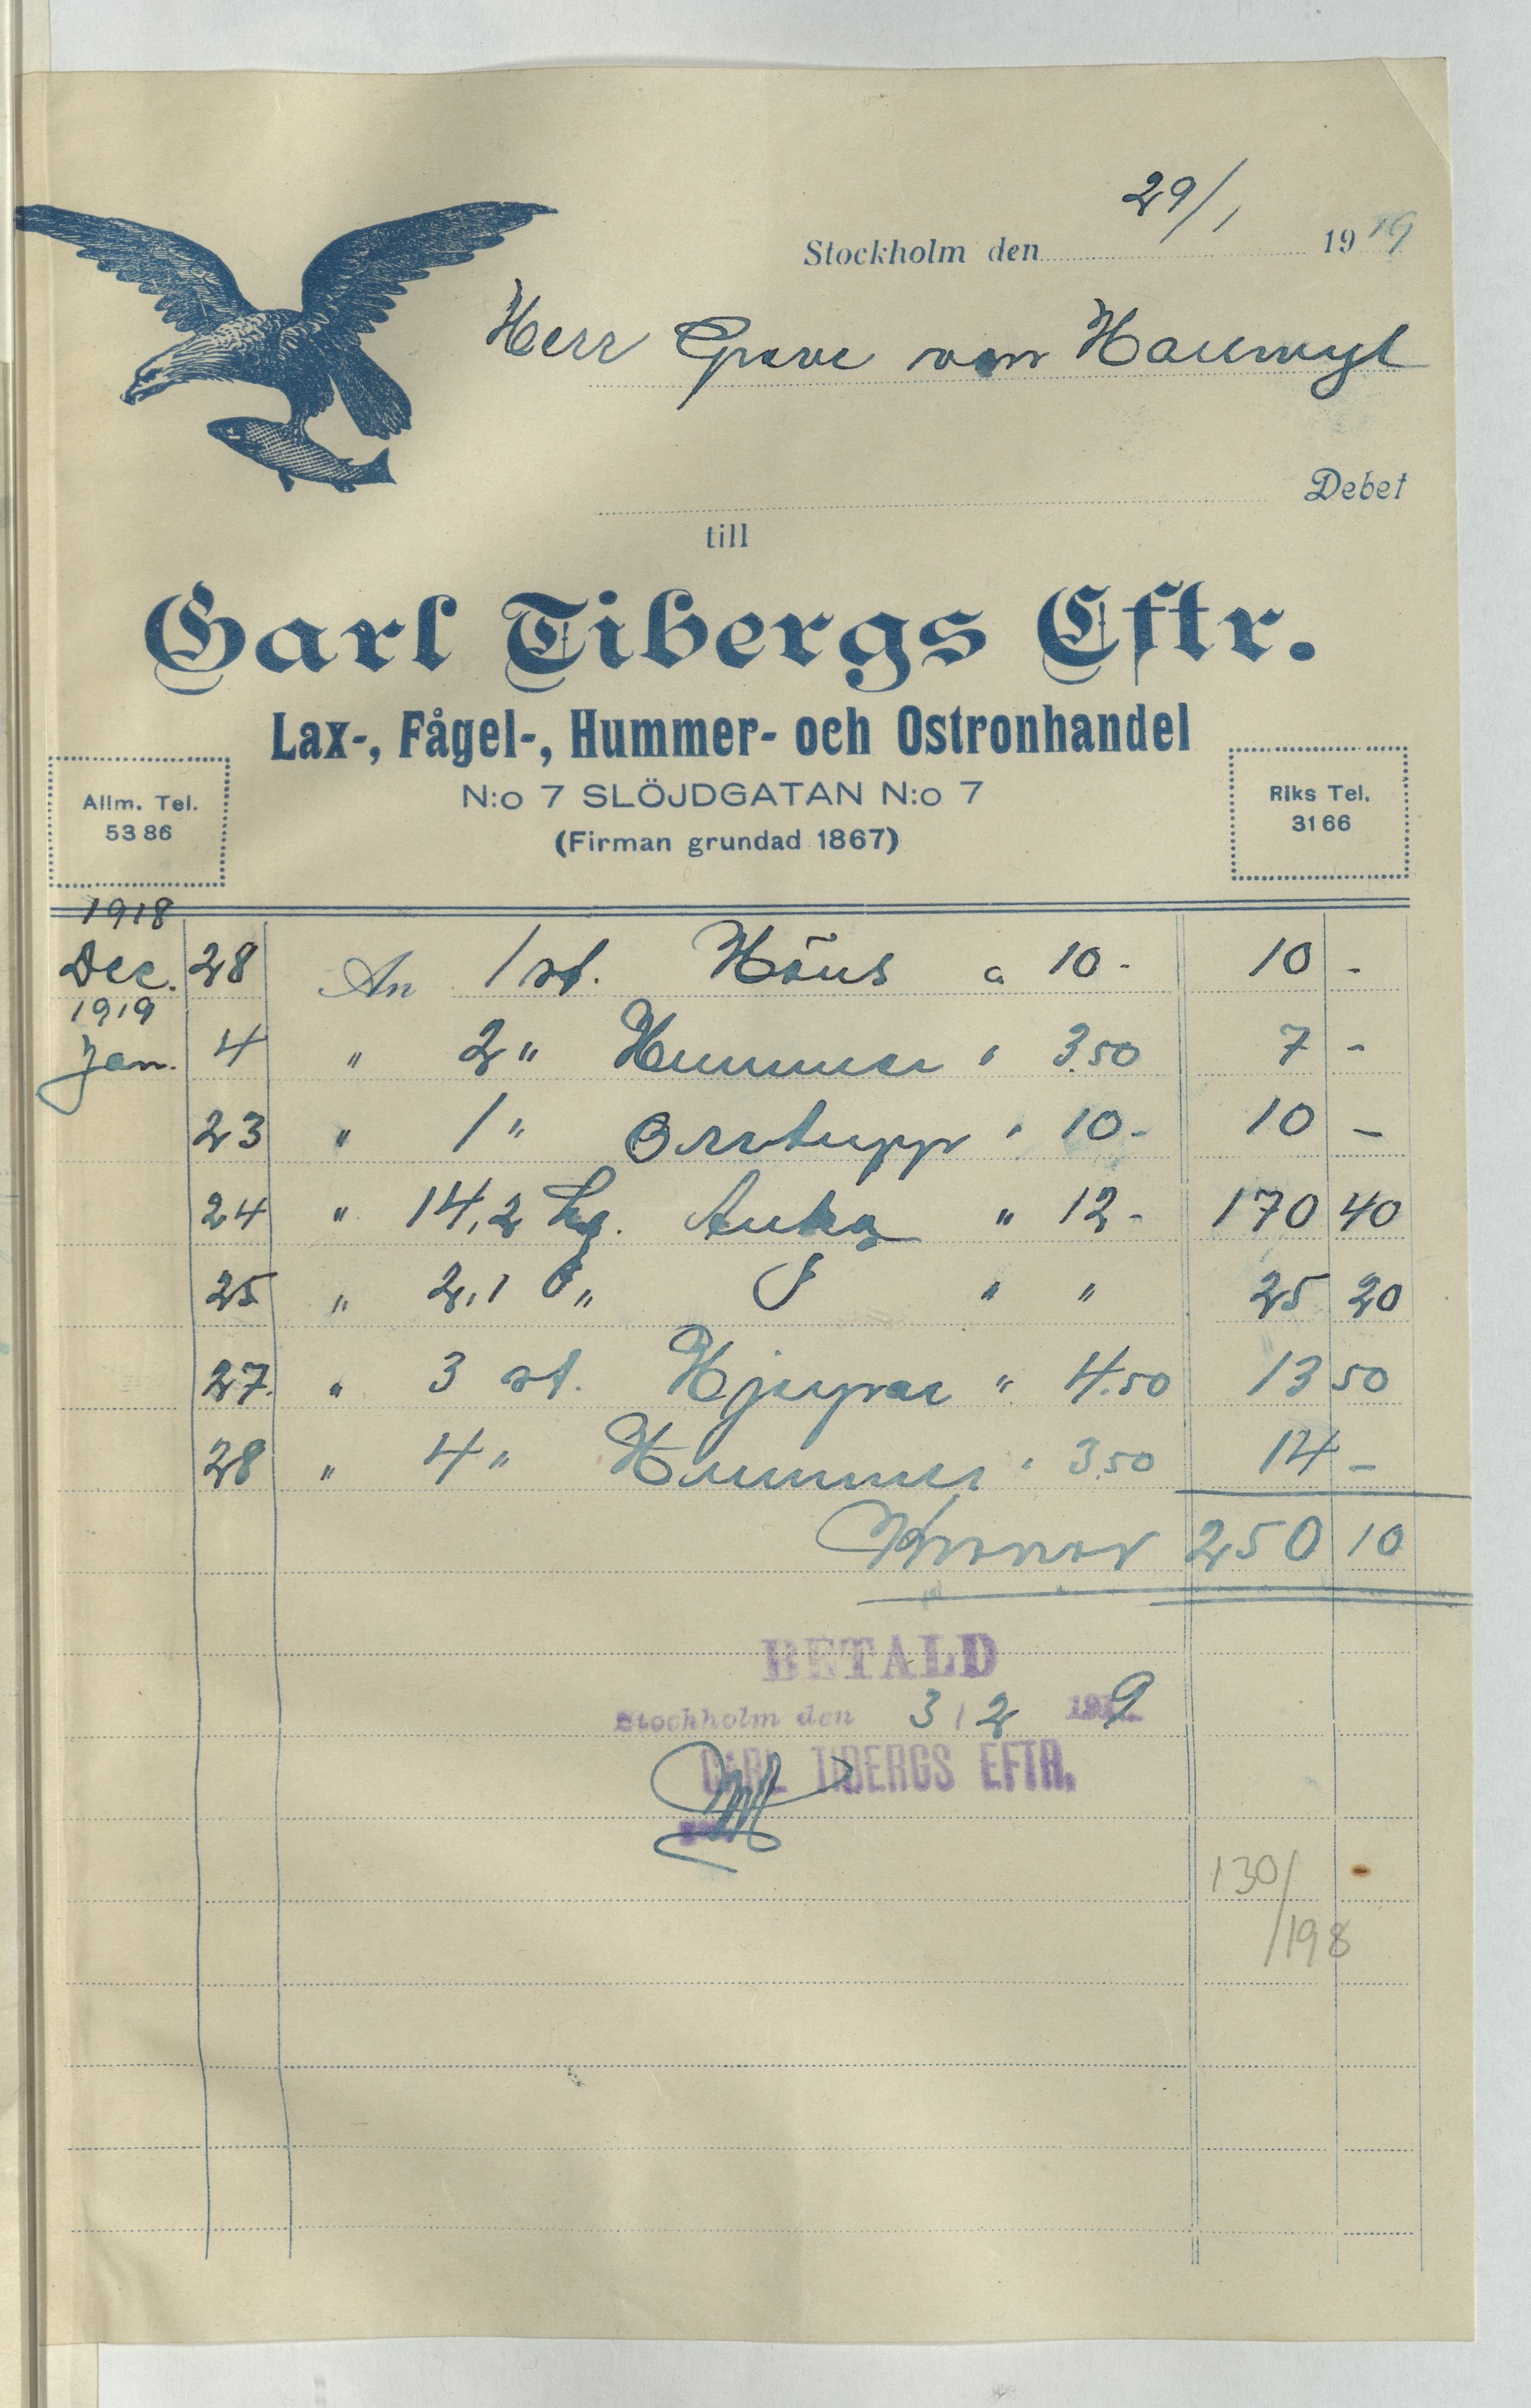 Stockholm den 29/1 1919
Herr Greve von Hallwyl
Debet
till
Carl Tibergs Eftr.
Lax-, Fågel-, Hummer- och Ostronhandel
N:o 7 SLÖJDGATAN N:o 7
(Firman grundad 1867)
Allm. Tel.
5386
Riks Tel.
3166
1918
Dec. 28 An 1 st. Höns a 10- 10 -
1919
Jan. 4 " 2 " Hummer " 3.50 7 -
23 " 1 " Orrtupp " 10- 10 -
24 " 14,2 kg. " 12- 170 40
25 " 2,1 " " " 25 20
27. " 3 st. Hjerpar " 4.50 13 50
28 " 4 " Hummer " 3.50 14 -
Kronor 250 10
BETALD
Stockholm den 3/2 1919
CARL TIBERGS EFTR.
130/
/198